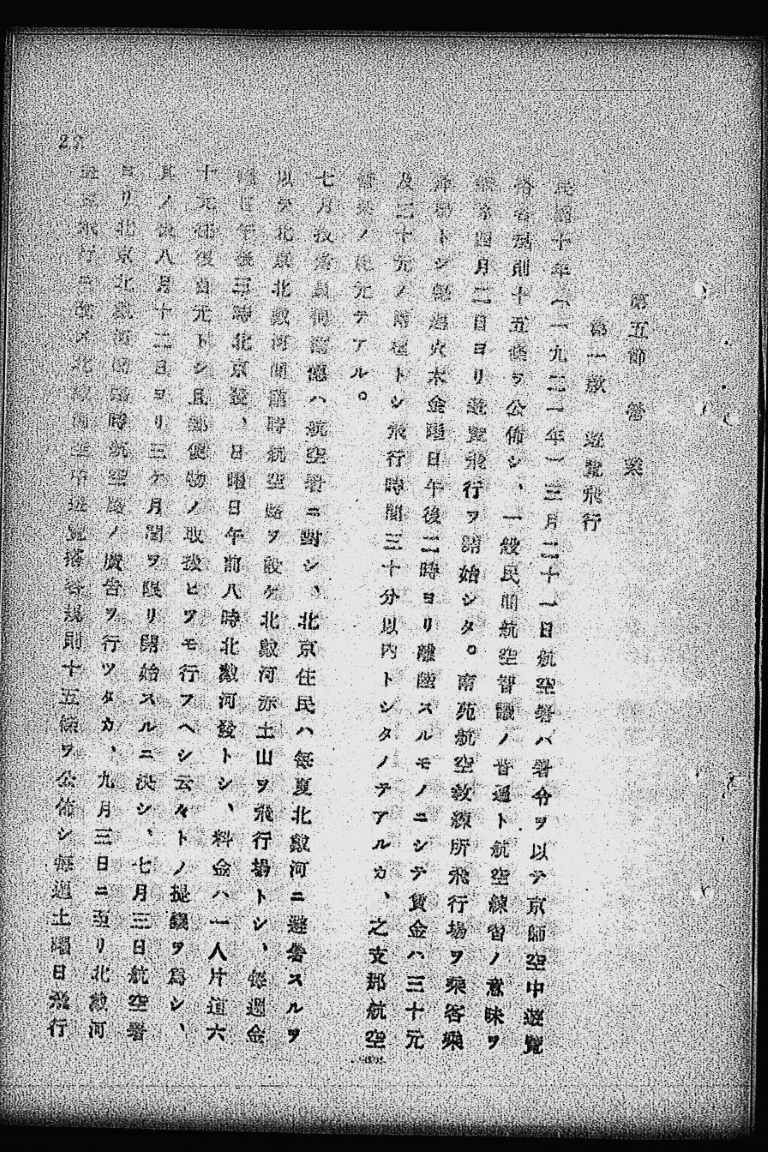 第五節 營業
第一款 遊覽飛行
民國十年(一九二一年)三月二十一日航空署ハ署令ヲ以テ京師空中遊覽
搭客規則十五條ヲ公佈シ、一般民間航空智識ノ普通ト航空練習ノ意味ヲ
四月二日ヨリ遊覽飛行ヲ開始シタ。南苑航空敎練所飛行場ヲ乘客乘
降場トシ每週火木金曜日午後二時ヨリ離陸スルモノニシテ賃金ハ三十元
及二十元ノ兩種トシ飛行時間三十分以內トシタノテアルカ、之支那航空
營業ノ紀元テアル。
七月技術員何富德ハ航空署ニ對シ、北京住民ハ每夏北戴河ニ避暑スルヲ
以テ北京北戴河間臨時航空路ヲ設ケ北戴河赤土山ヲ飛行場トシ、每週金
曜日午後三時北京發、日曜日午前八時北戴河發トシ、料金ハ一人片道六
十元往復百元トシ且郵便物ノ取扱ヒヲモ行フヘシ云々トノ提議ヲ爲シ、
其ノ後八月十二日ヨリ三ケ月間ヲ限リ開始スルニ決シ、七月三日航空署
ヨリ北京北戴河間臨時航空路ノ廣告ヲ行ツタカ、九月三日ニ至リ北戴河
遊覽飛行ニ改メ北戴河空中遊覽搭客規則十五條ヲ公佈シ每週土曜日飛行